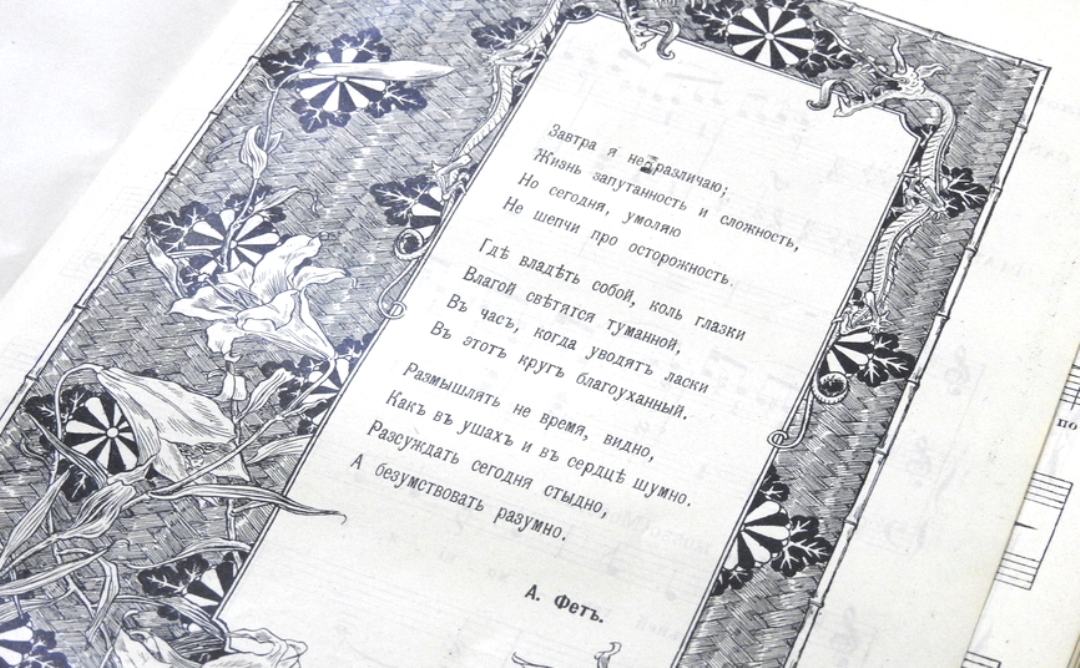 Завтра я не различаю;
Жизнь запутанность и сложность,
Но сегодня, умоляю
Не шепчи про осторожность.
Гдѣ владѣть собой, коль глазки
Влагой свѣтятся туманной,
Въ часъ, когда уводятъ ласки
Въ этотъ кругъ благоуханный.
Размышлять не время, видно,
Какъ въ ушахъ и въ сердцѣ шумно.
Разсуждать сегодня стыдно,
А безумствовать разумно.
А. Фетъ.
по